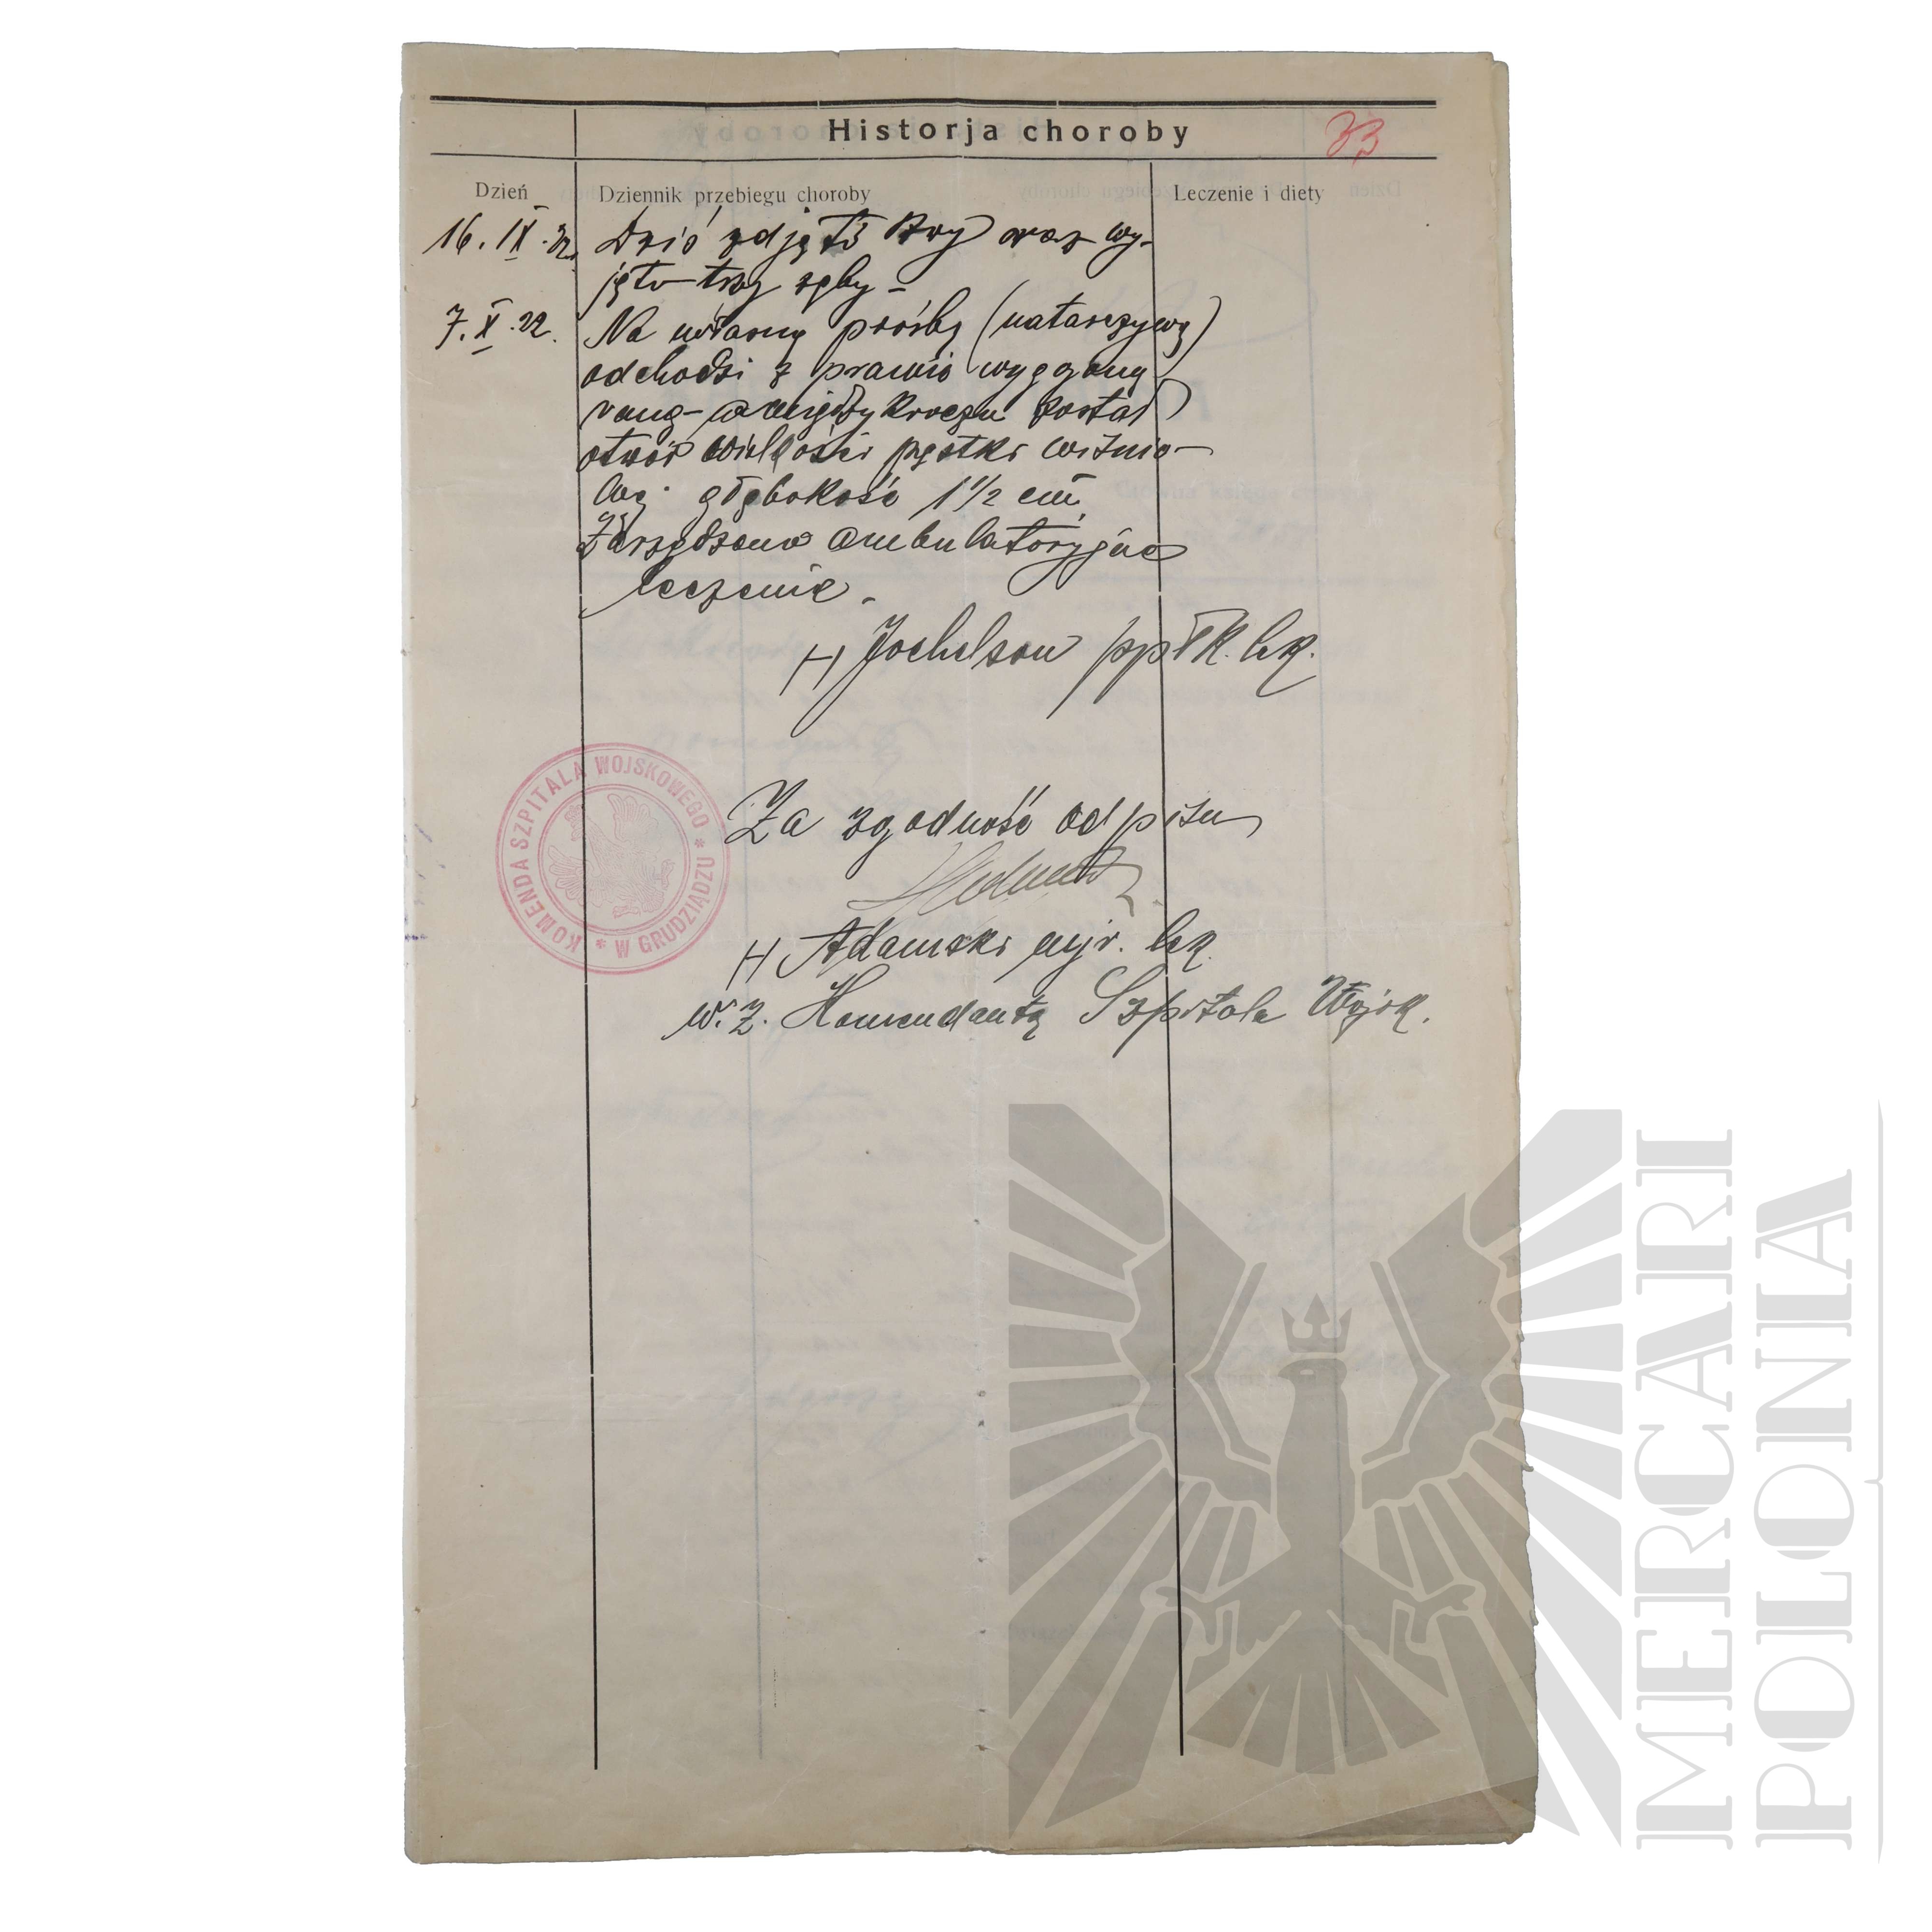 Historja choroby
33
Dzień
Dziennik przebiegu choroby
Leczenie i diety
16. IX. 22. Dziś zdjęto szwy oraz wy-
jęto trzy zęby –
7. X. 22. Na własną prośbę (natarczywą)
odchodzi z prawie wygojoną
raną – w międzykroczu został
otwór wielkości pestki wiśnio-
wej głębokość 1 1/2 cm.
Zarządzono ambulatoryjne
leczenie. –
Jochelson ppłk. lek.
Za zgodność odpisu
Adamski mjr. lek.
w. z. Komendanta Szpitala Wojsk.
KOMENDA SZPITALA WOJSKOWEGO * W GRUDZIĄDZU *
MERCARI
POLONIA